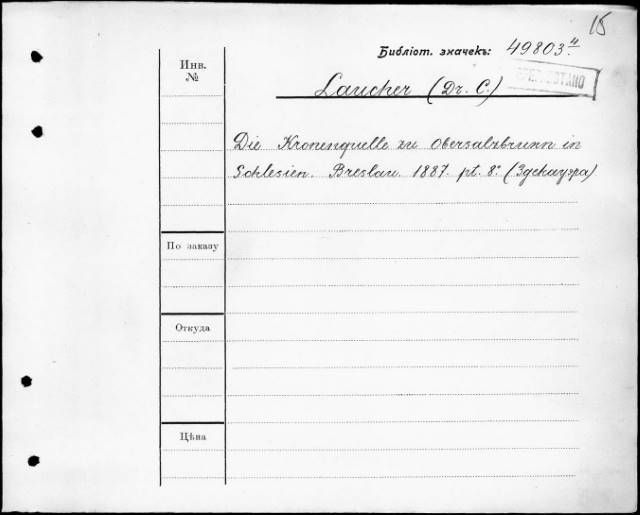 15
Библіот. значекъ: 49803 4
Инв.
№
Laucher (Dr. C.)
Die Kronenquelle zu Obersalzbrunn in
Schlesien. Breslau. 1887. pt. 8°. (Здекауэра)
По заказу
Откуда
Цѣна